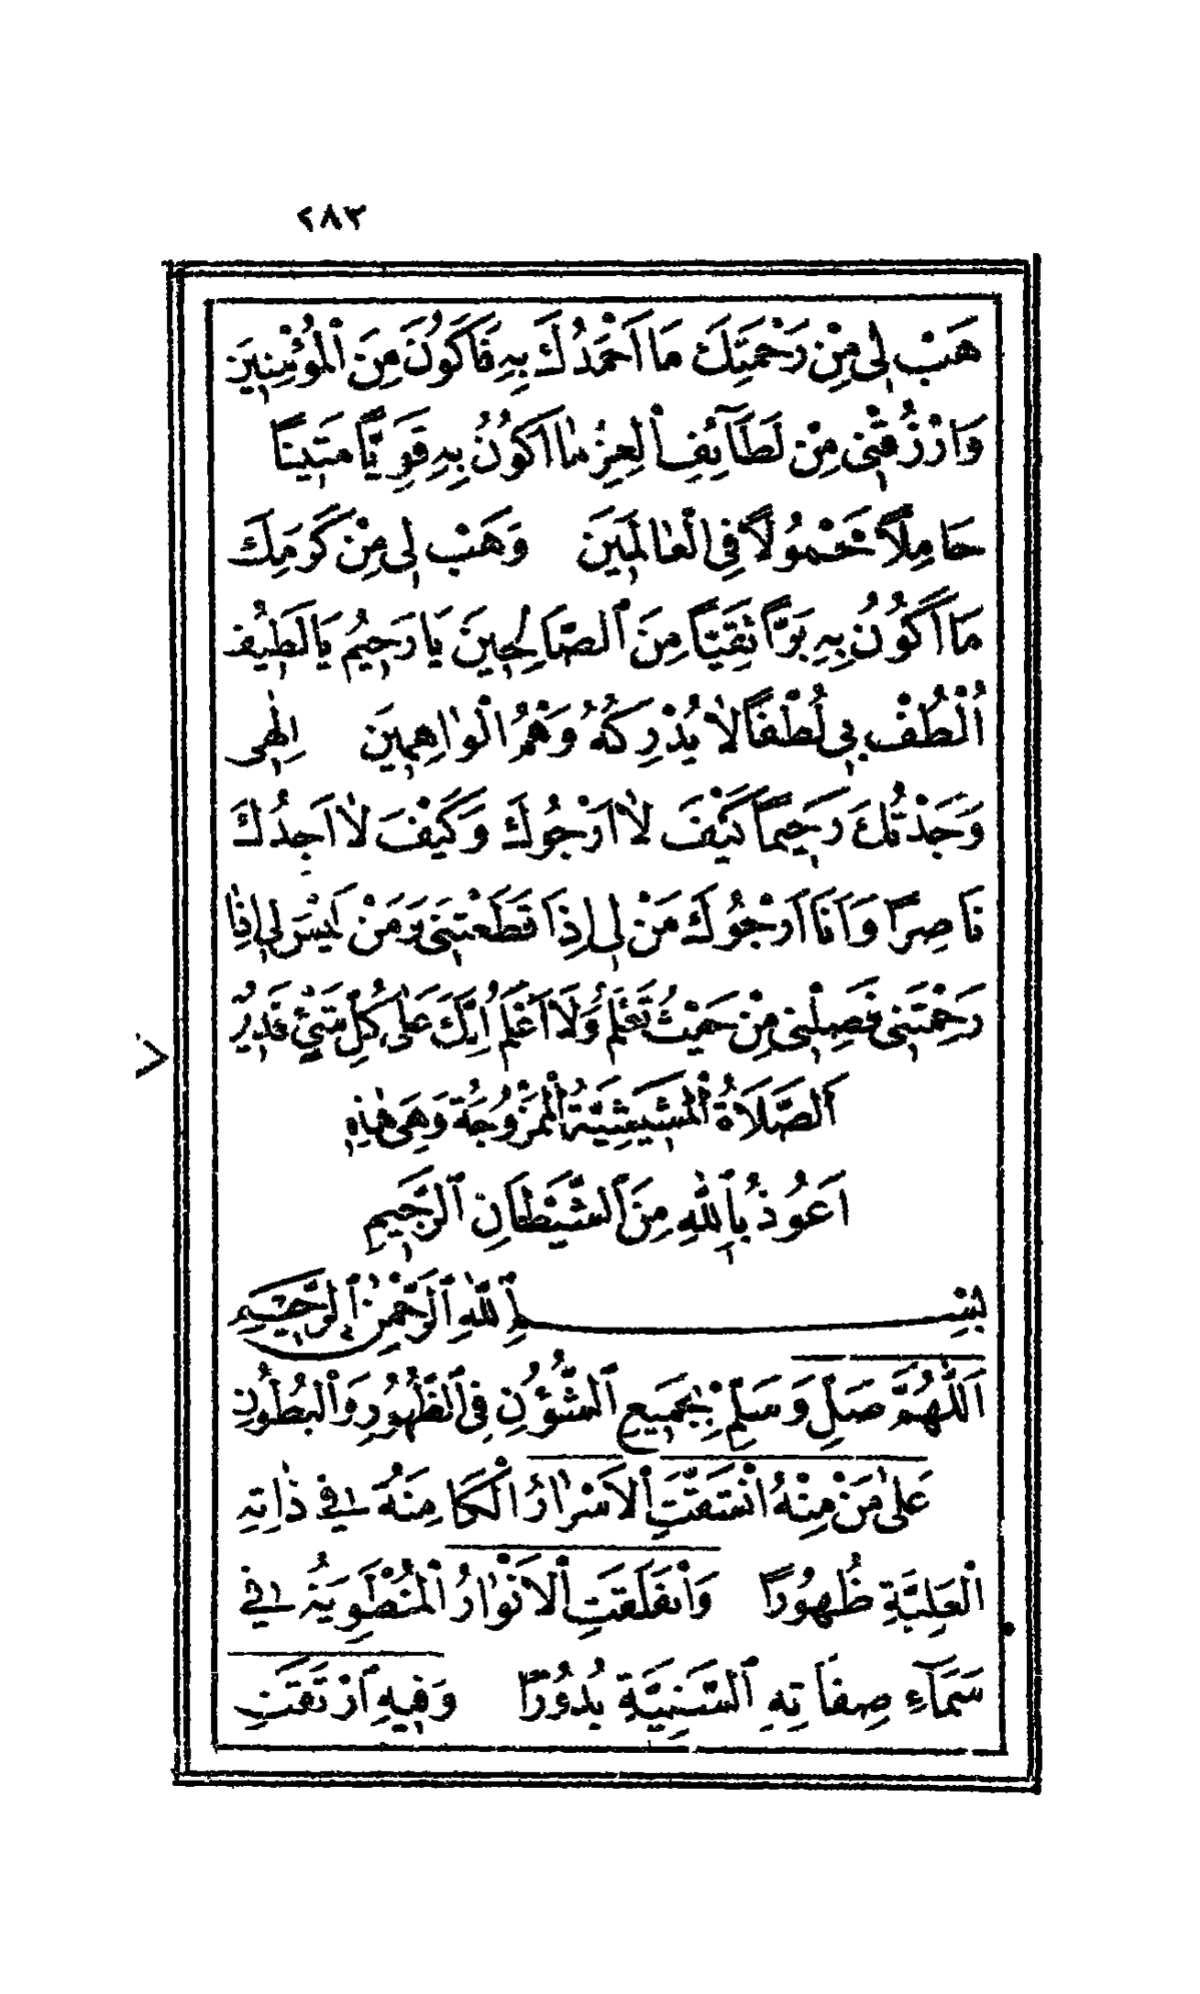 ٢٨٣
هَبْ لِي مِنْ رَحْمَتِكَ مَا اَحْمَدُكَ بِهِ فَاَكُونَ مِنَ الْمُؤْمِنِينَ
وَارْزُقْنِي مِنْ لَطَآئِفِ الْعِزِّ مٰا اَكُونُ بِهِ قَوِيًّا مَتِينًا
حَامِلًا حَمُولًا فِي الْعٰالَمِينَ وَهَبْ لِي مِنْ كَرَمِكَ
مَا اَكُونُ بِهِ بَرًّا تَقِيًّا مِنَ الصَّالِحِينَ يَا رَحِيمُ يَا لَطِيفُ
اُلْطُفْ بِي لُطْفًا لٰا يُدْرِكُهُ وَهْمُ الْوٰاهِمِينَ اِلٰهِي
وَجَدْتُكَ رَحِيمًا كَيْفَ لٰا اَرْجُوكَ وَكَيْفَ لٰا اَجِدُكَ
نَاصِرًا وَاَنَا اَرْجُوكَ مَنْ لِي اِذَا قَطَعْتَنِي وَمَنْ لَيْسَ لِي اِذٰا
رَحِمْتَنِي فَصِلْنِي مِنْ حَيْثُ تَعْلَمُ وَلَا اَعْلَمُ اِنَّكَ عَلٰى كُلِّ شَيْءٍ قَدِيرٌ
اَلصَّلَاةُ الْمَشِيشِيَّةُ الْمَمْزُوجَةُ وَهِيَ هٰذِهِ
اَعُوذُ بِاللّٰهِ مِنَ الشَّيْطَانِ الرَّجِيمِ
بِسْمِ اللّٰهِ الرَّحْمٰنِ الرَّحِيمِ
اَللّٰهُمَّ صَلِّ وَسَلِّمْ بِجَمِيعِ الشُّؤُنِ فِي الظُّهُورِ وَالْبُطُونِ
عَلٰى مَنْ مِنْهُ انْشَقَّتِ الْاَسْرٰارُ الْكَامِنَةُ فِي ذٰاتِهِ
الْعَلِيَّةِ ظُهُورًا وَانْفَلَقَتِ الْاَنْوٰارُ الْمُنْطَوِيَةُ فِي
سَمَآءِ صِفَاتِهِ السَّنِيَّةِ بُدُورًا وَفِيهِ ارْتَقَتِ